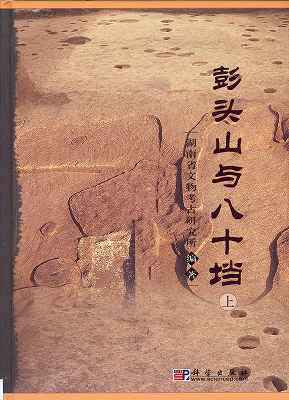 彭头山与八十垱
上
湖南省文物考古研究所 编著
科学出版社
www.sciencep.com